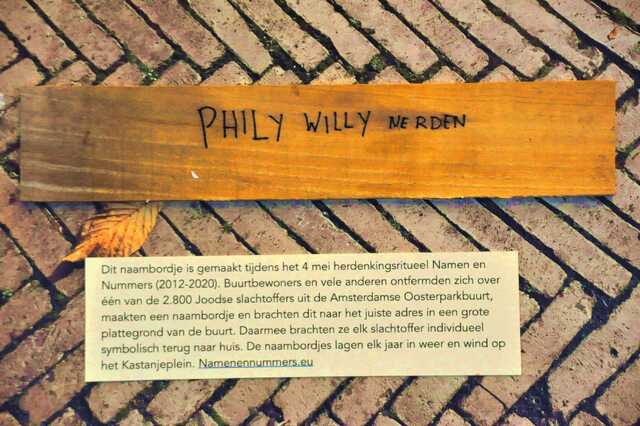 PHILY WILLY NERDEN
Dit naambordje is gemaakt tijdens het 4 mei herdenkingsritueel Namen en
Nummers (2012-2020). Buurtbewoners en vele anderen ontfermden zich over
één van de 2.800 Joodse slachtoffers uit de Amsterdamse Oosterparkbuurt,
maakten een naambordje en brachten dit naar het juiste adres in een grote
plattegrond van de buurt. Daarmee brachten ze elk slachtoffer individueel
symbolisch terug naar huis. De naambordjes lagen elk jaar in weer en wind op
het Kastanjeplein. Namenennummers.eu